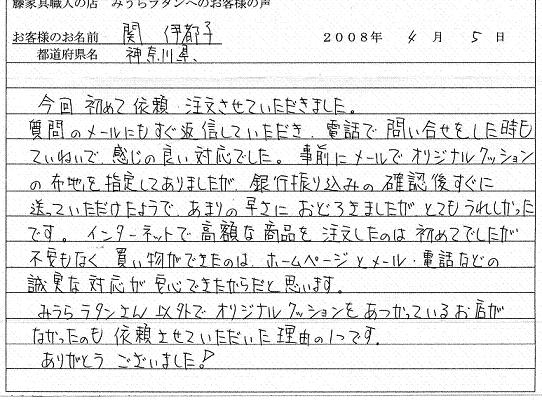 藤家具職人の店 みうらラタンへのお客様の声
お客様のお名前 関 伊都子 2008年 4月 5日
都道府県名 神奈川県、
今回 初めて依頼・注文させていただきました。
質問のメールにもすぐ返信していただき、電話で問い合せをした時も
ていねいで、感じの良い対応でした。事前にメールでオリジナルクッション
の布地を指定してありましたが、銀行振り込みの確認後すぐに
送っていただけたようで、あまりの早さにおどろきましたが、とてもうれしかった
です。インターネットで高額な商品を注文したのは初めてでしたが
不安もなく買い物ができたのは、ホームページとメール・電話などの
誠実な対応が安心できたからだと思います。
みうらラタンさん以外でオリジナルクッションをあつかっているお店が
なかったのも依頼させていただいた理由の1つです。
ありがとうございました!